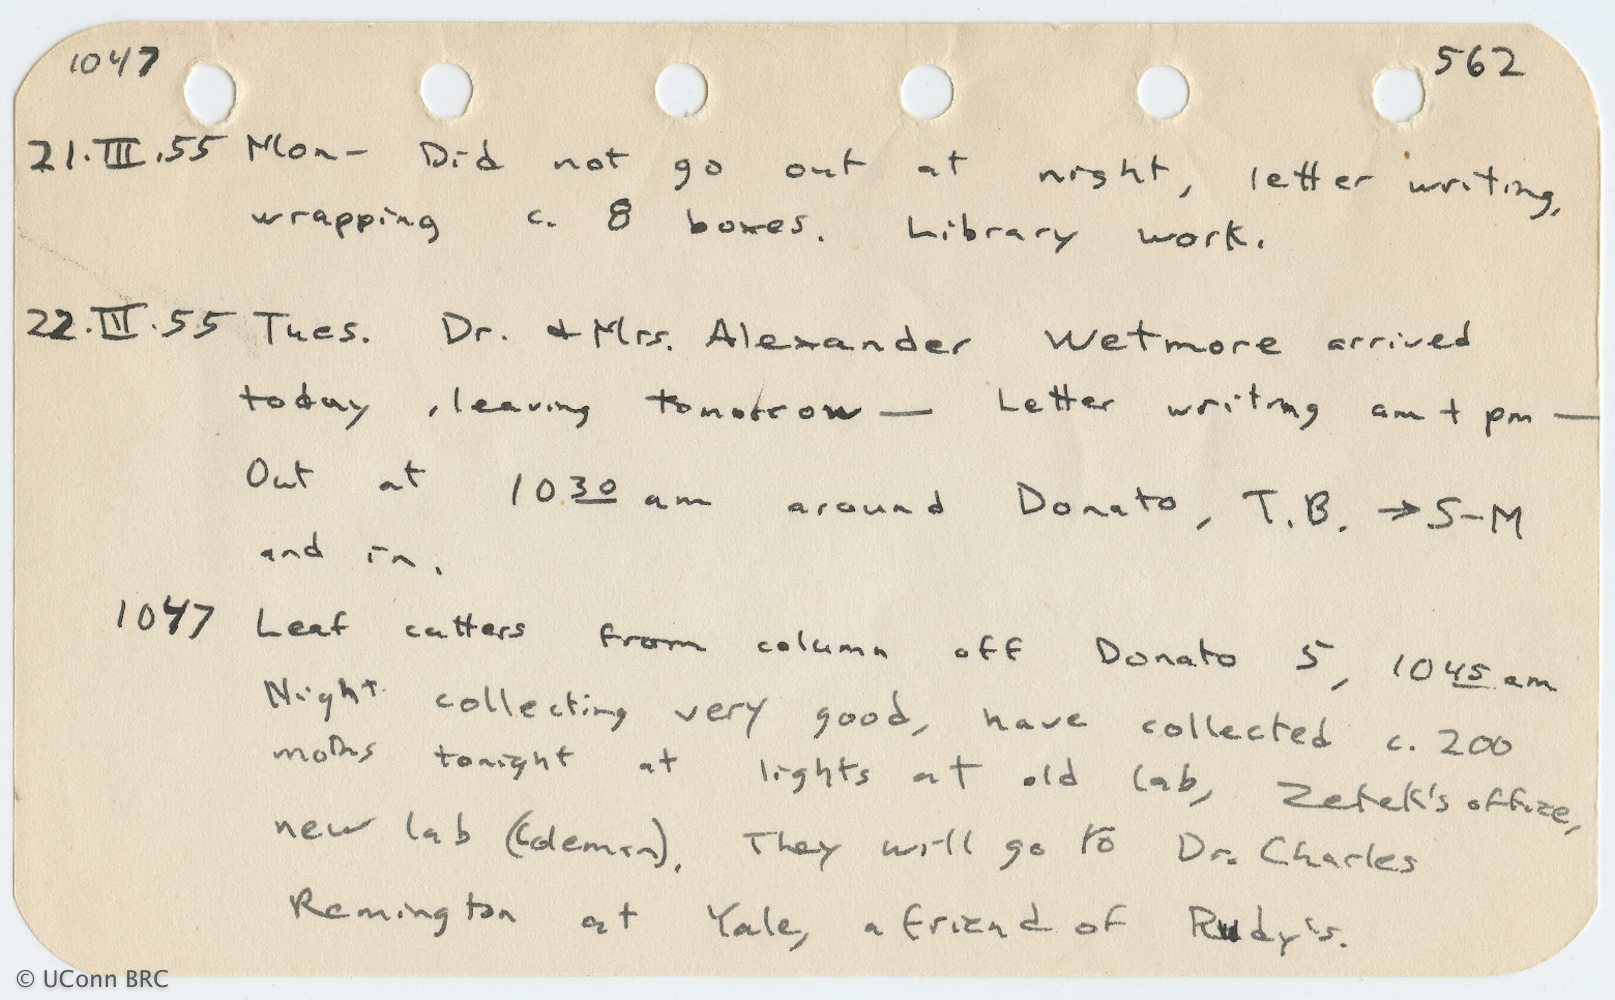 1047 562
21.III.55 Mon- Did not go out at night, letter writing,
wrapping c. 8 boxes. Library work.
22.III.55 Tues. Dr. + Mrs. Alexander Wetmore arrived
today, leaving tomorrow — Letter writing am + pm —
Out at 10 30 am around Donato, T.B. → S-M
and in.
1047 Leaf cutters from column off Donato 5, 10 45 am
Night collecting very good, have collected c. 200
moths tonight at lights at old lab, Zetek's office,
new lab They will go to Dr. Charles
Remington at Yale, a friend of Rudy's.
© UConn BRC